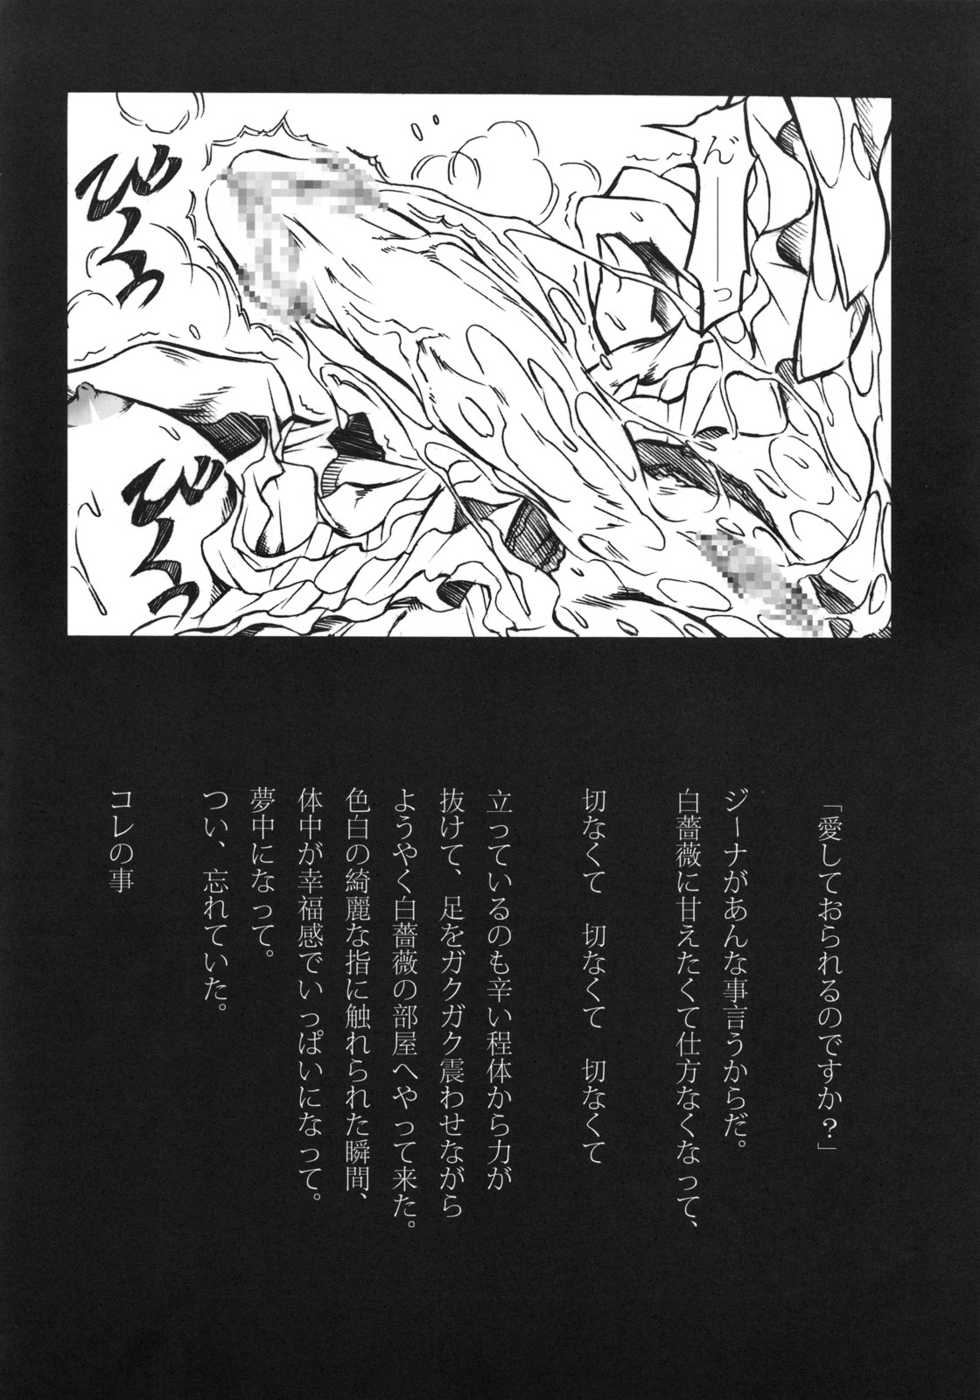 ん――っ
びくっ
びくっ
「愛しておられるのですか？」
ジーナがあんな事言うからだ。
白薔薇に甘えたくて仕方なくなって、
切なくて　切なくて　切なくて
立っているのも辛い程体から力が
抜けて、足をガクガク震わせながら
ようやく白薔薇の部屋へやって来た。
色白の綺麗な指に触れられた瞬間、
体中が幸福感でいっぱいになって。
夢中になって。
つい、忘れていた。
コレの事